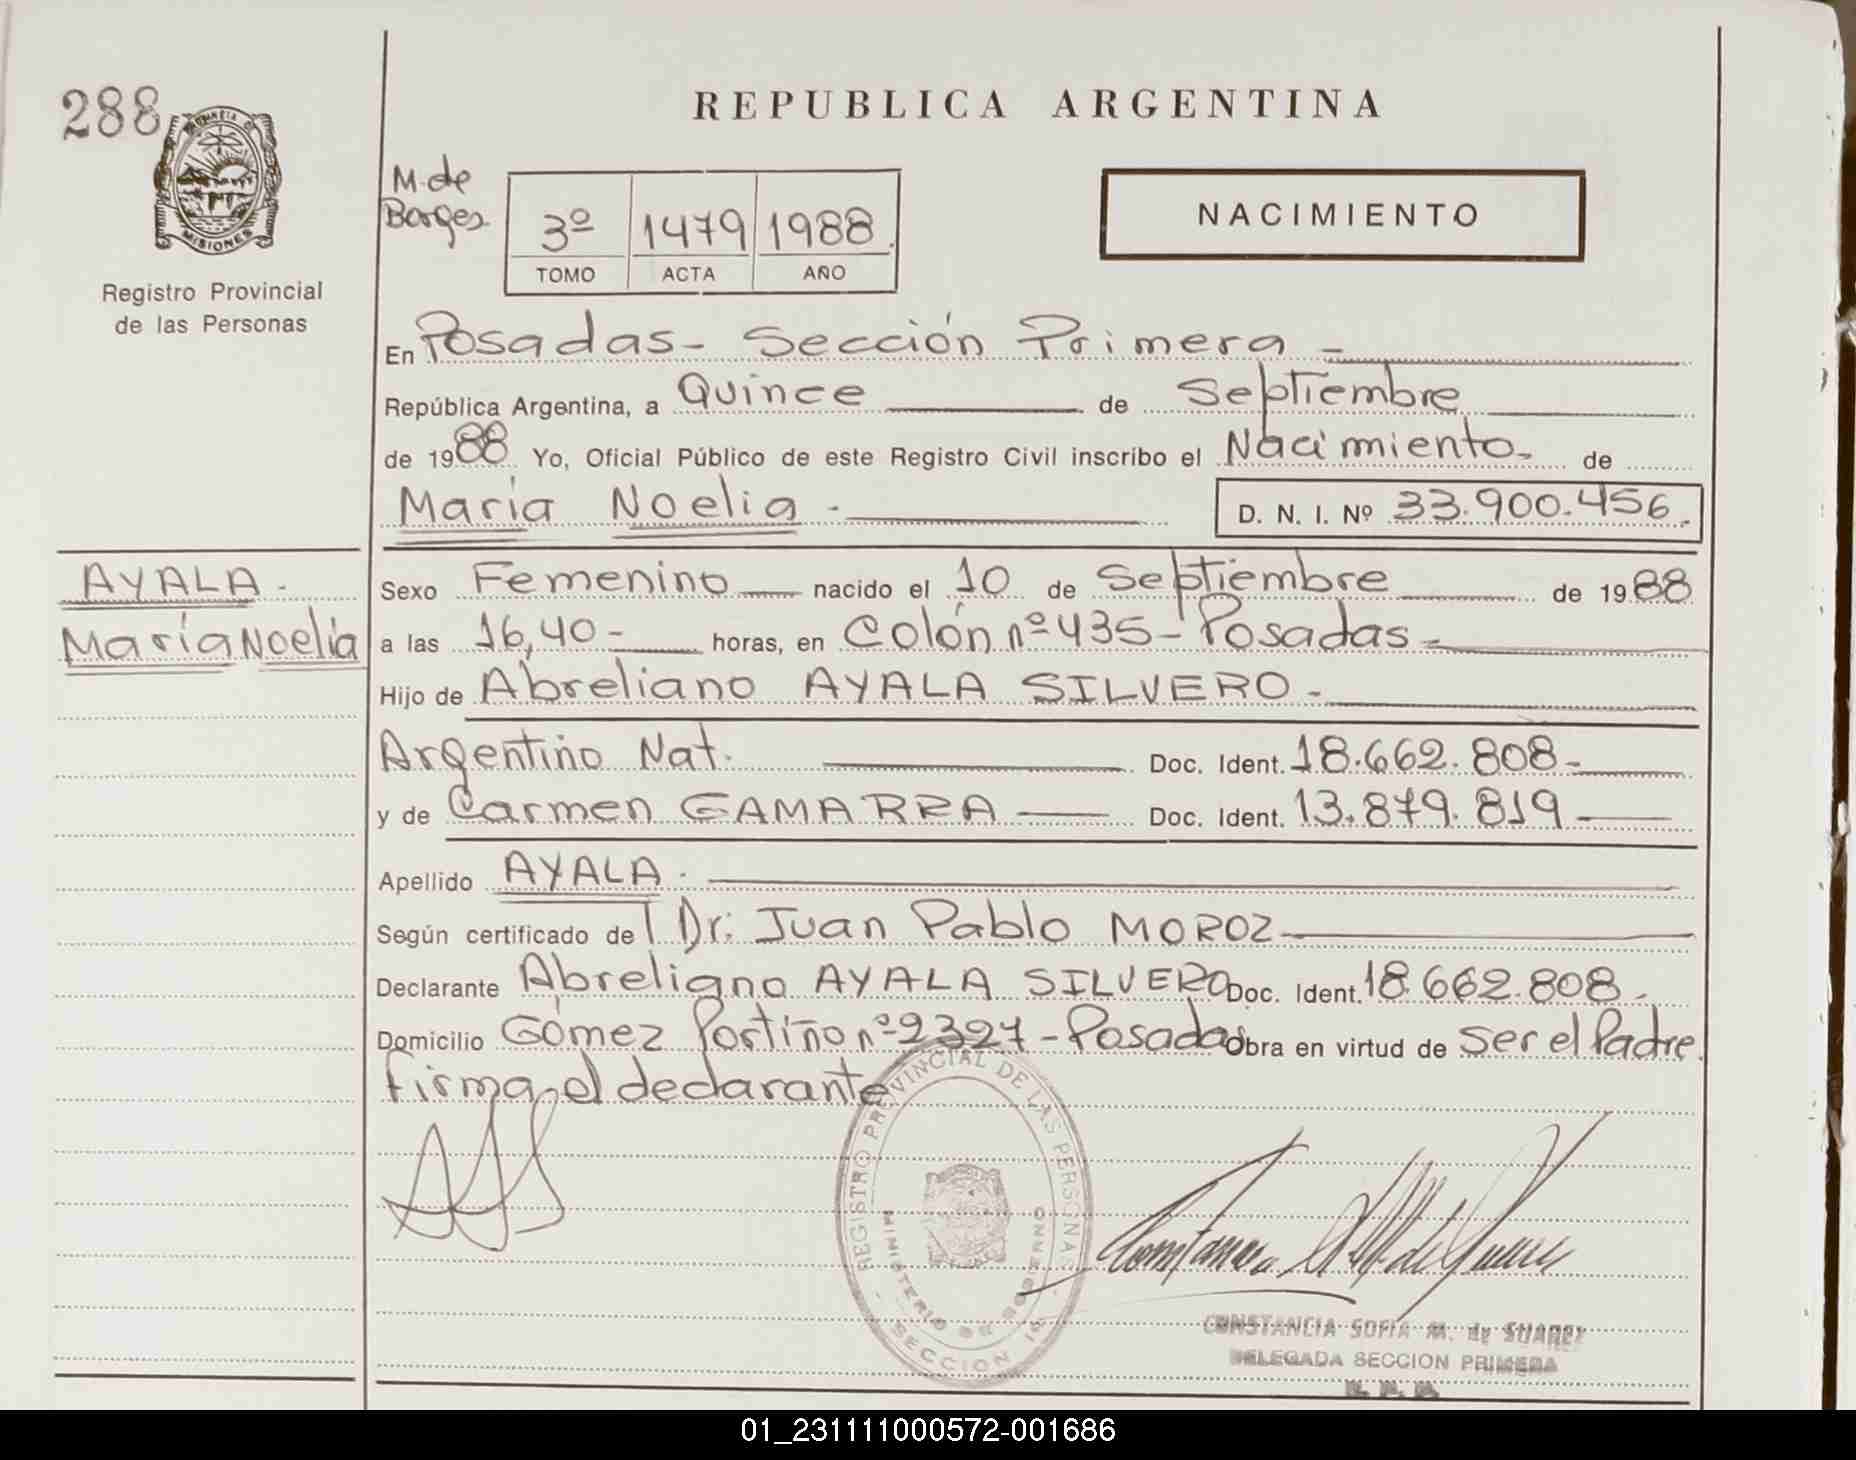 288
PROVINCIA DE
MISIONES
Registro Provincial
de las Personas
REPUBLICA ARGENTINA
M. de
Borges
3º 1479 1988
TOMO ACTA AÑO
NACIMIENTO
En Posadas - Sección Primera -
República Argentina, a Quince de Septiembre
de 1988 Yo, Oficial Público de este Registro Civil inscribo el Nacimiento - de
María Noelia - D. N. I. Nº 33.900.456.
AYALA -
María Noelia
Sexo Femenino nacido el 10 de Septiembre de 1988
a las 16,40 - horas, en Colón nº 435 - Posadas -
Hijo de Abreliano AYALA SILVERO -
Argentino Nat. Doc. Ident. 18.662.808 -
y de Carmen GAMARRA Doc. Ident. 13.879.819
Apellido AYALA -
Según certificado del Dr. Juan Pablo MOROZ
Declarante Abreliano AYALA SILVERO Doc. Ident. 18.662.808 -
Domicilio Gómez Portiño nº 2327 - Posadas Obra en virtud de ser el Padre.
Firma el declarante
REGISTRO PROVINCIAL DE LAS PERSONAS
MINISTERIO DE GOBIERNO
SECCION 1ª
CONSTANCIA SOFIA M. de SUAREZ
DELEGADA SECCION PRIMERA
R. P. P.
01_231111000572-001686